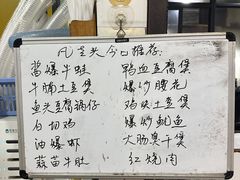 今日推荐:
酱爆牛蛙 鸭血豆腐煲
牛腩土豆煲 爆炒腰花
鱼头豆腐锅仔 鸡块土豆煲
白切鸡 爆炒鱿鱼
油爆虾 大肠臭干煲
蒜苗牛肚 红烧肉